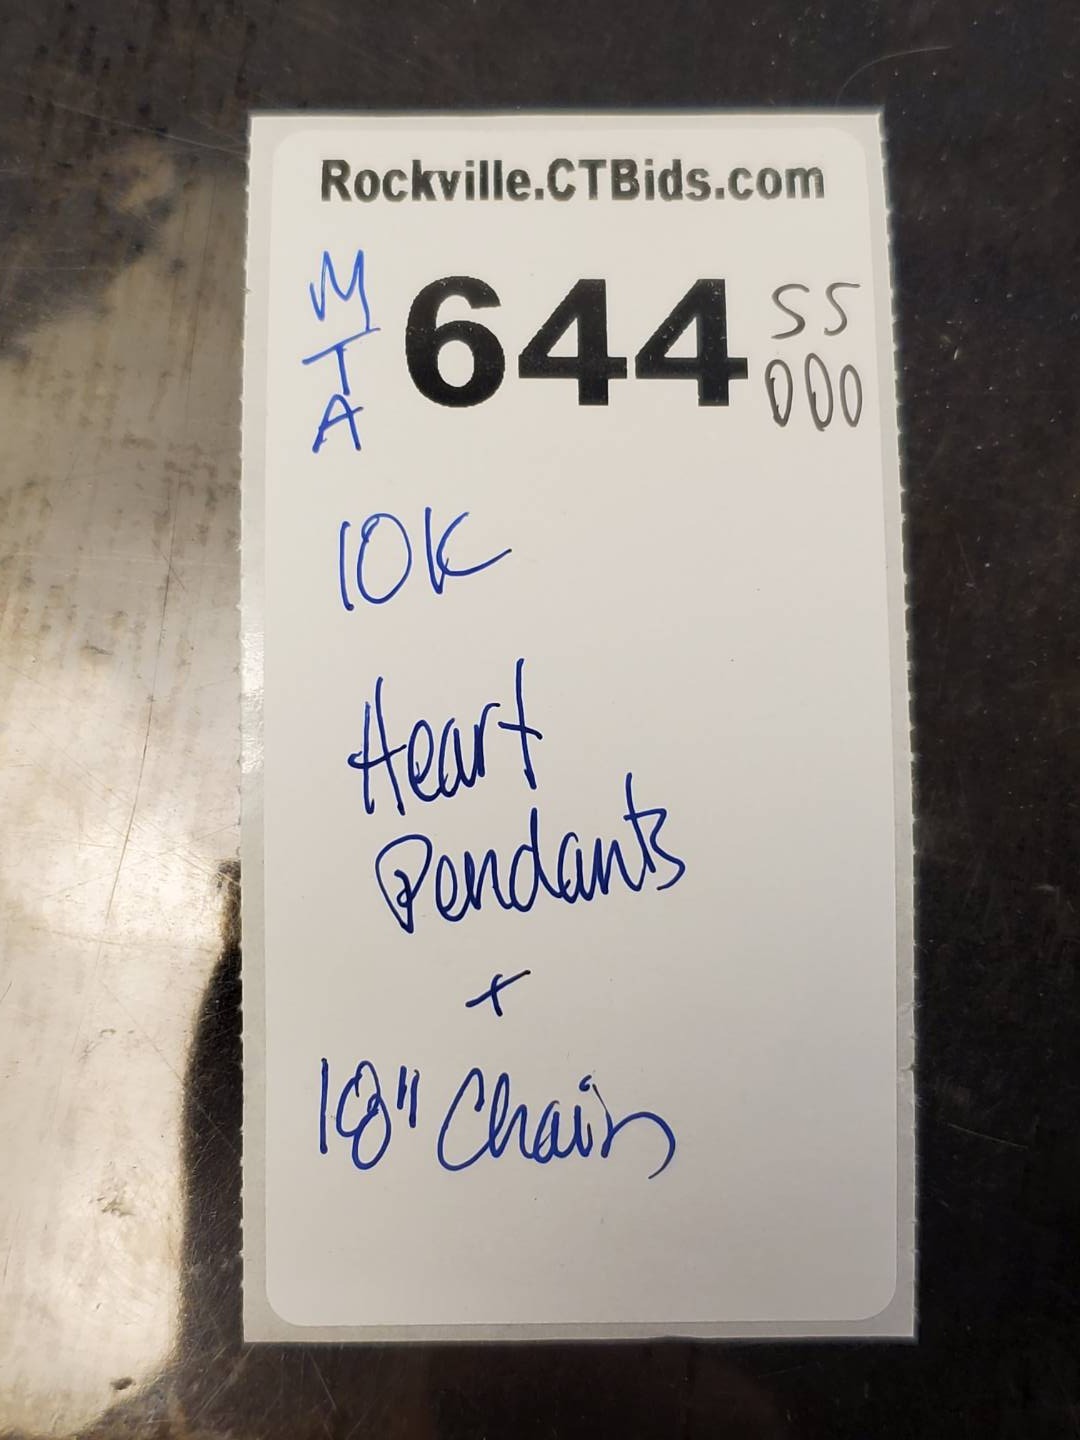 Rockville.CTBids.com
MTA
644
SS
000
10K
Heart
Pendants
+
18" Chain